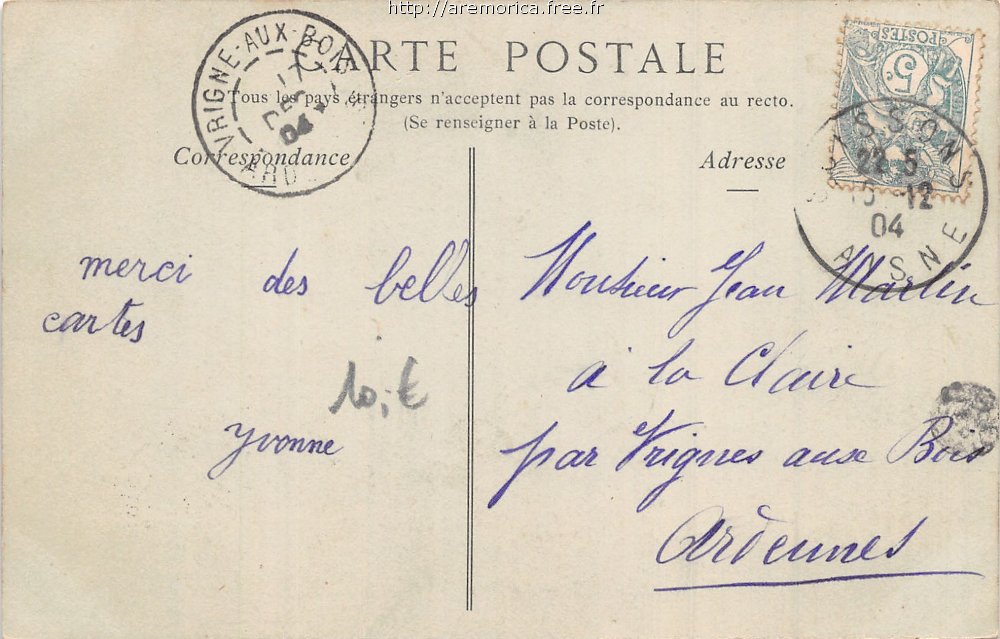 http://aremorica.free.fr
CARTE POSTALE
Tous les pays étrangers n'acceptent pas la correspondance au recto.
(Se renseigner à la Poste).
VRIGNE-AUX-BOIS
17
DEC
04
ARD
Correspondance
Adresse
POSTES
5c
22 5
12
04
AISNE
merci des belles
cartes
10,-€
yvonne
Monsieur Jean Martin
à la Claire
par Vrignes aux Bois
Ardennes